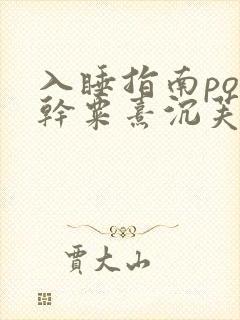 入睡指南po
幹粟熹沉芙
賈大山